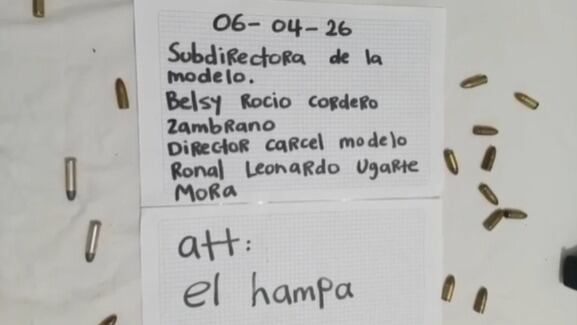 06-04-26
SubdiRectoRa de la
modelo.
Belsy Rocio coRdeRo
ZambRaNo
DiRectoR caRcel modelo
Ronal LeonaRdo UgaRte
MoRa
att:
el hampa